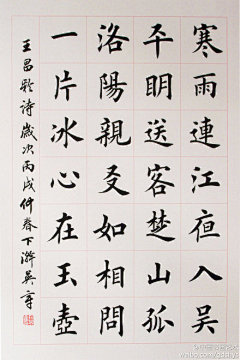 寒雨連江亱入吳
平眀送客楚山孤
洛陽親友如相問
一片冰心在玉壺
王昌齡詩歲次丙戌仲春下澣吳